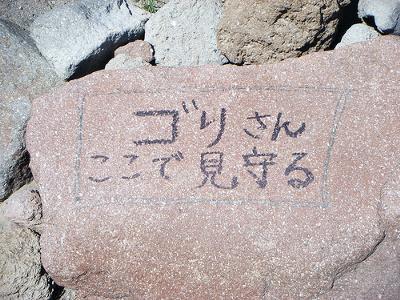 ゴリさん
ここで見守る